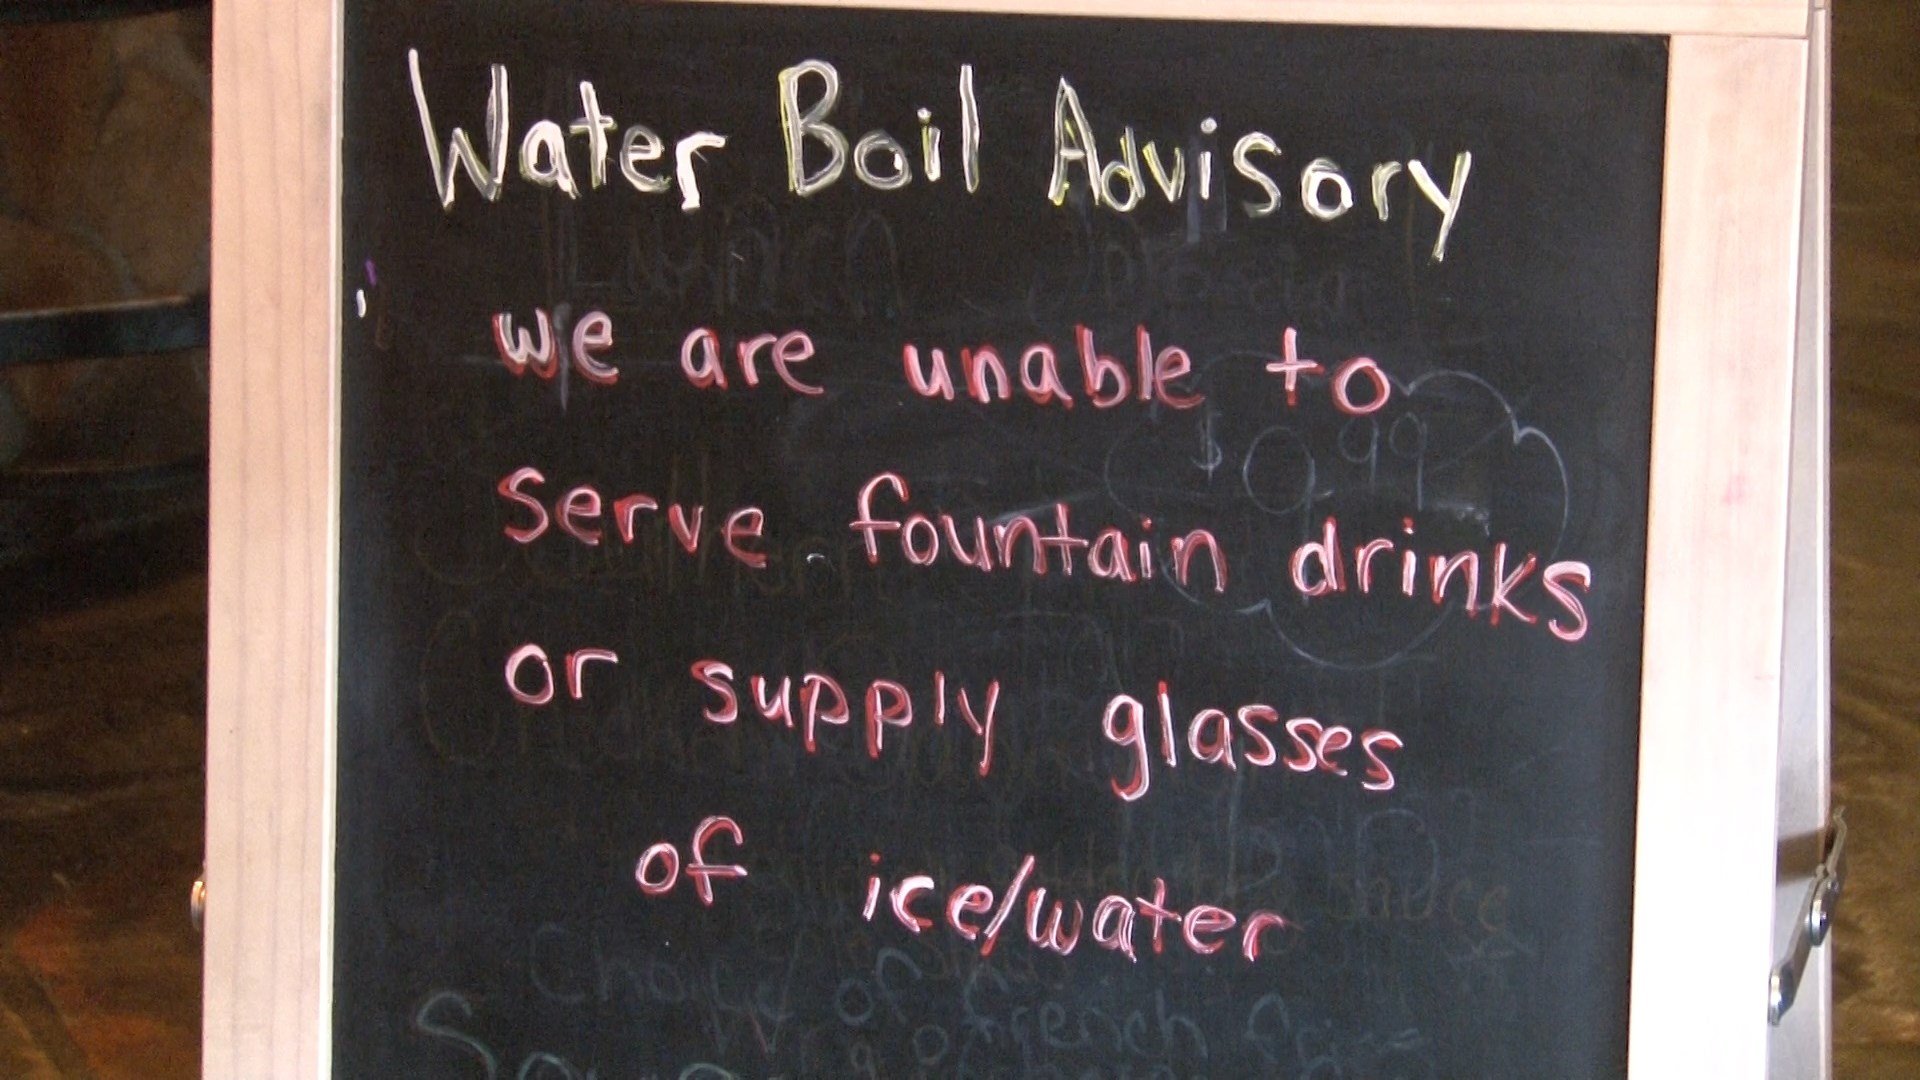 Water Boil Advisory
we are unable to
serve fountain drinks
or supply glasses
of ice/water
$9.99
Choice of
French